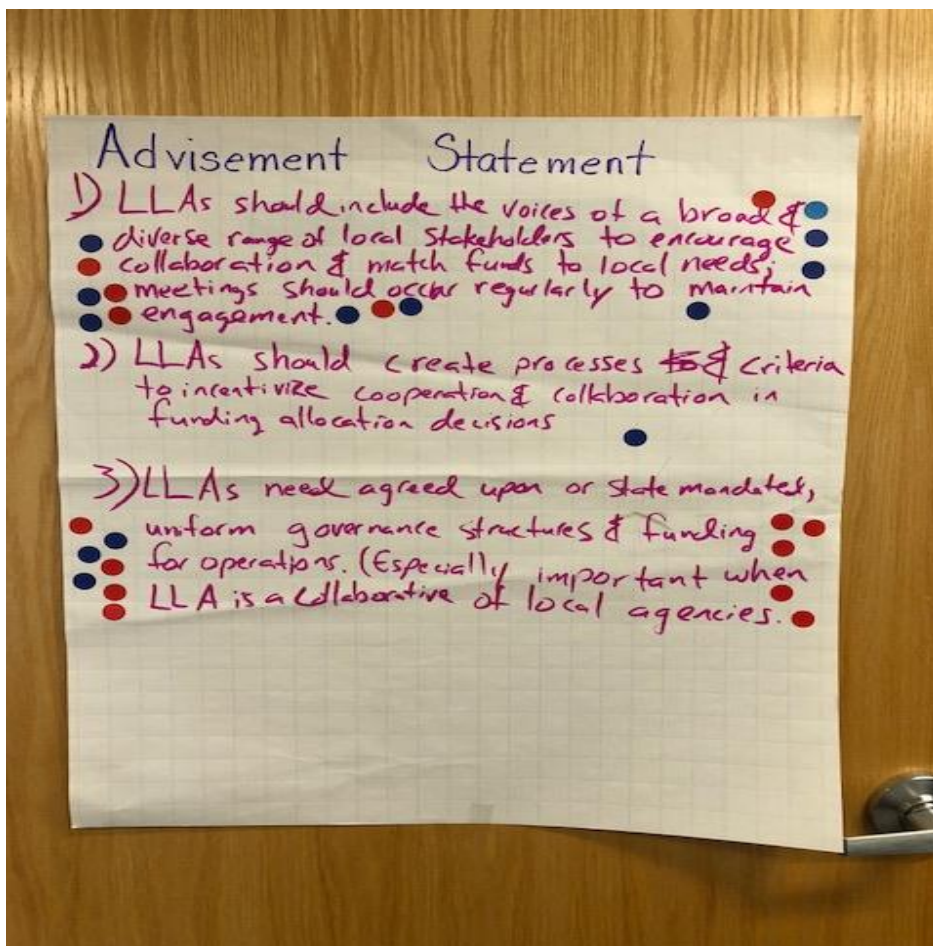 Advisement Statement
1) LLAs should include the voices of a broad &
diverse range of local stakeholders to encourage
collaboration & match funds to local needs;
meetings should occur regularly to maintain
engagement.
2) LLAs should create processes & criteria
to incentivize cooperation & collaboration in
funding allocation decisions
3) LLAs need agreed upon or state mandated,
uniform governance structures & funding
for operations. (Especially important when
LLA is a collaborative of local agencies.